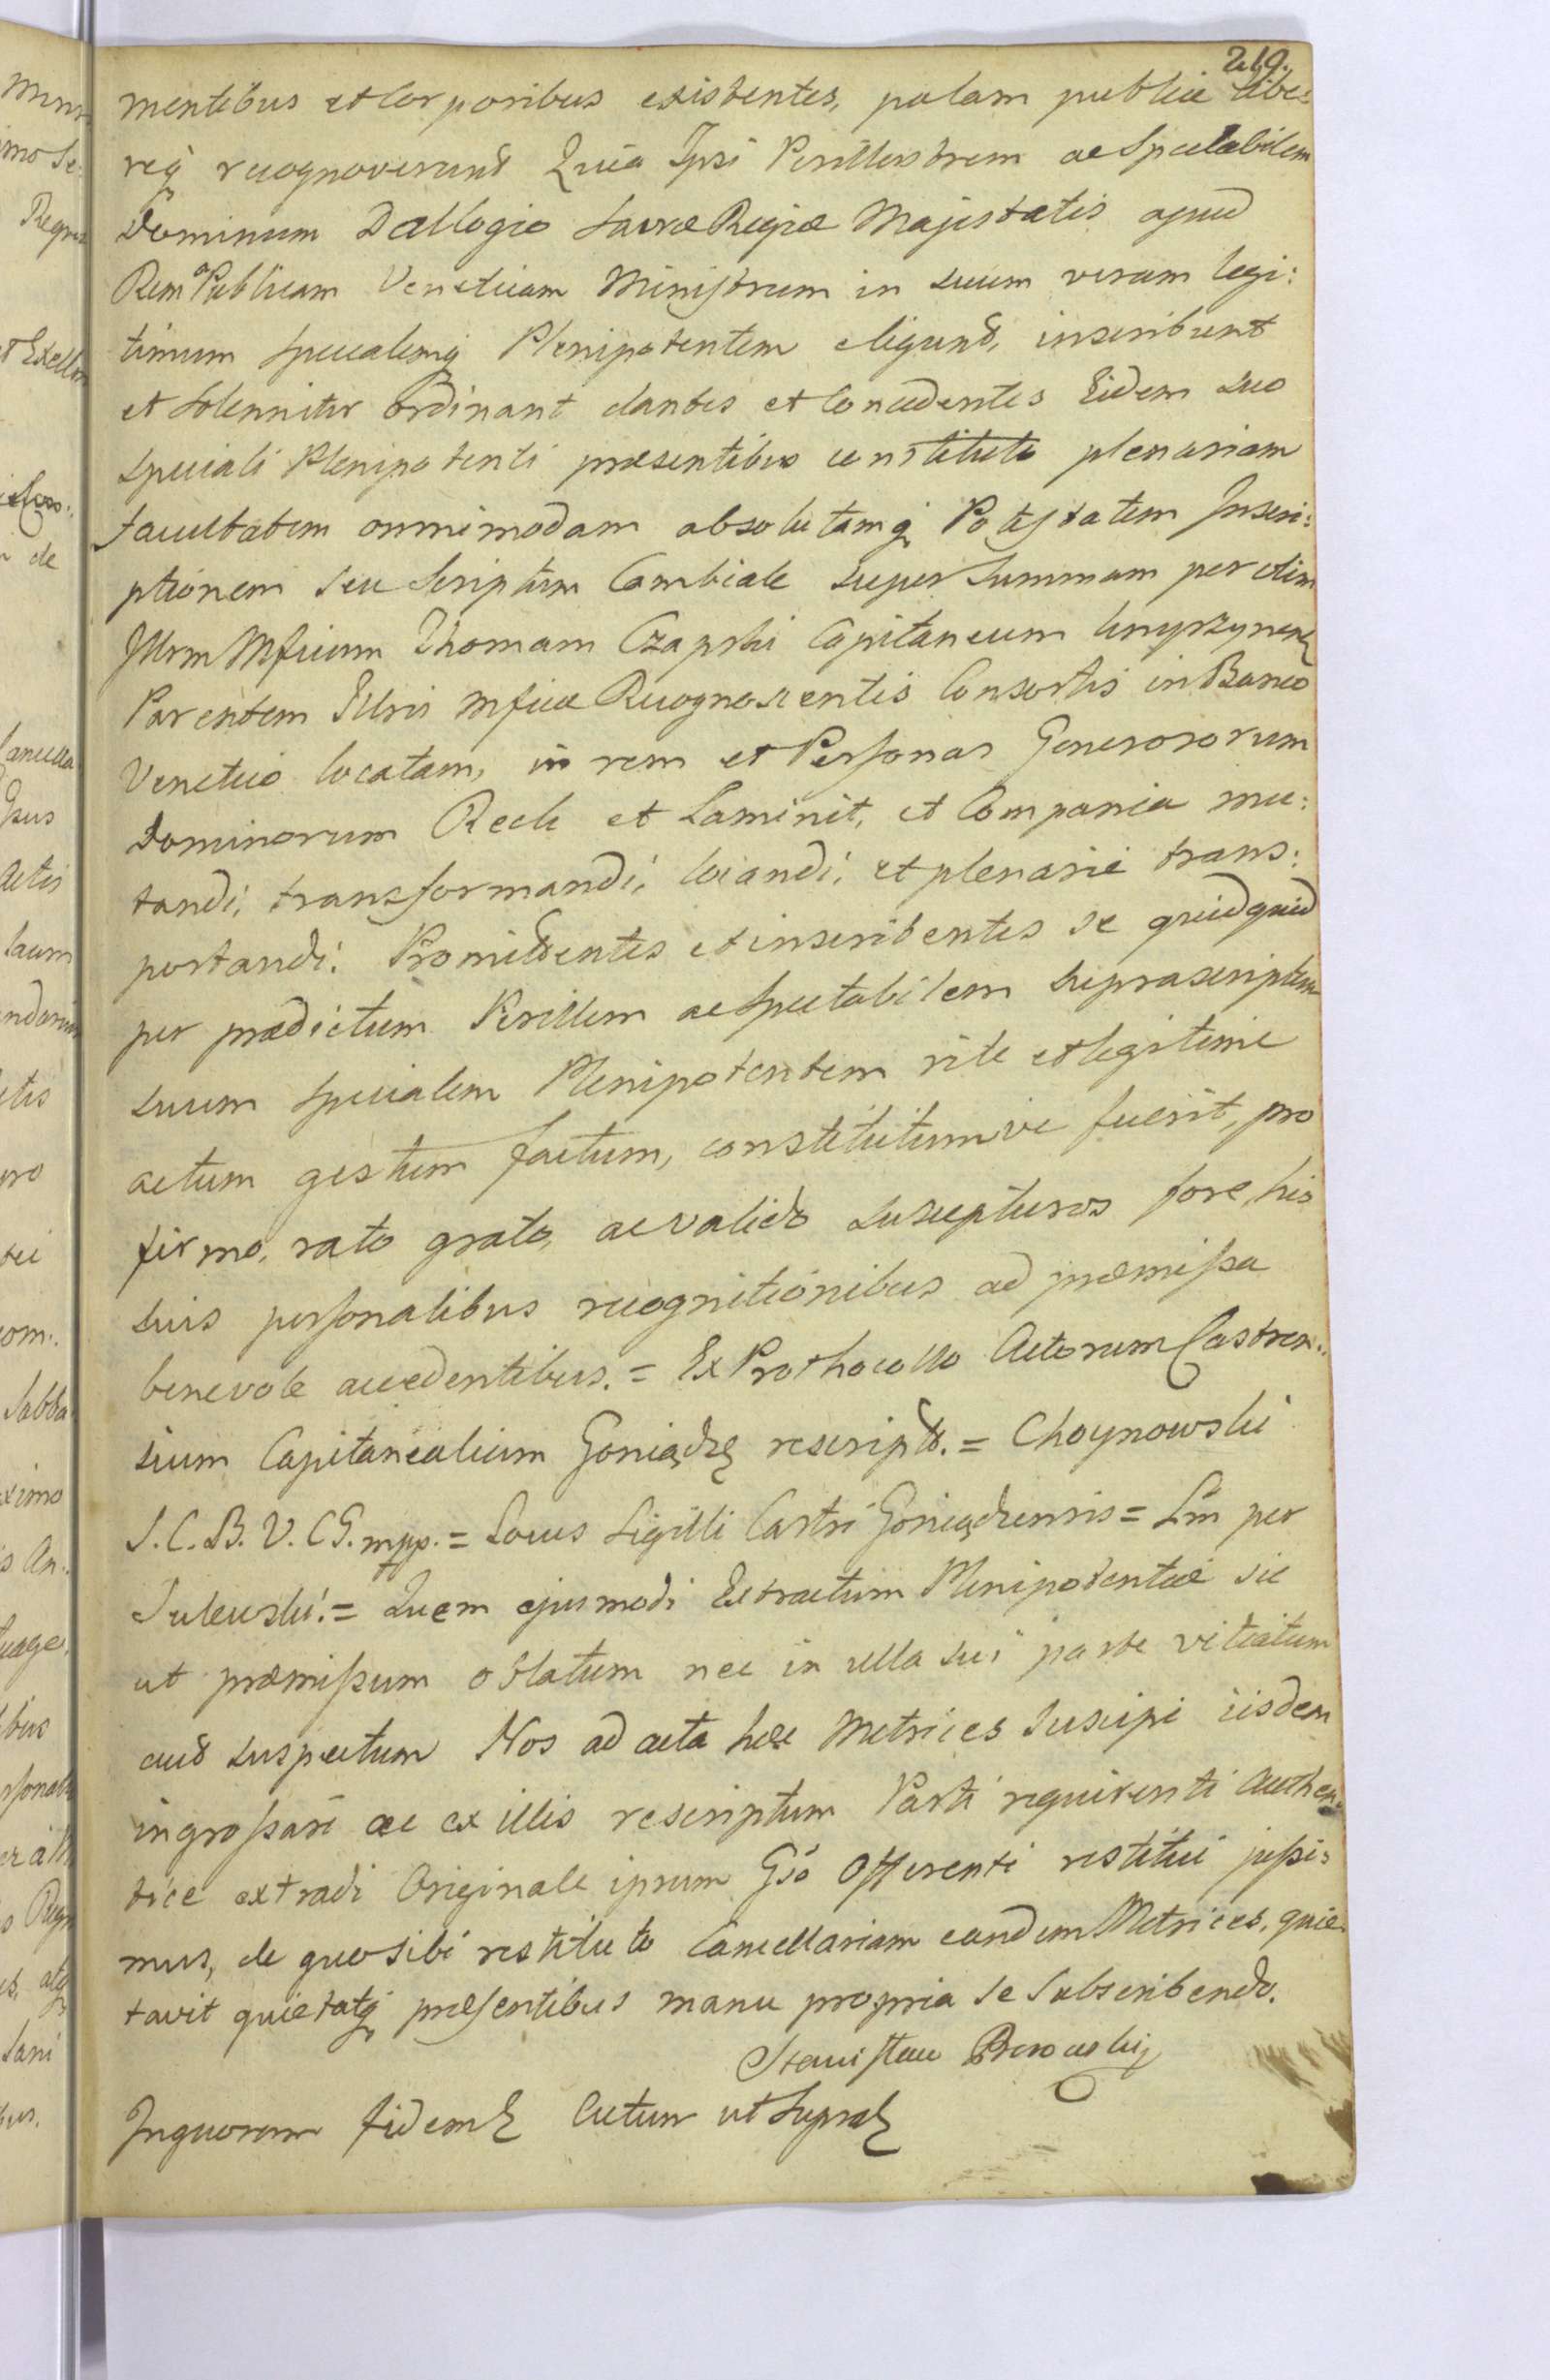 219.
mentibus et Corporibus existentes, palam publice libe:
reqꝫ recognoverunt Quia Ipsi Perillustrem ac Spectabilem
Dominum Dallogio Sacræ Regiæ Majestatis apud
Rem Publicam Venetiam Ministrum in suum verum legi:
timum specialemqꝫ Plenipotentem eligunt, inscribunt
et Solenniter Ordinant dantes et Concedentes Eidem suo
speciali Plenipotenti præsentibus constituto plenariam
facultatem omnimodam absolutamqꝫ Potestatem Inscri:
ptionem seu Scriptum Cambiale super Summam per olim
Illrm Mficum Thomam Czapski Capitaneum Knyszynen
Parentem Illris Mficæ Recognoscentis Consortis in Banco
Venetico locatam, in rem et Personas Generosorum
Dominorum Reck et Laminit, et Compania mu:
tandi, transformandi, locandi, et plenarie trans:
portandi. Promittentes et inscribentes se quidquid
per prædictum Perillem ac Spectabilem suprascriptum
suum specialem Plenipotentem rite et legitime
actum gestum factum, constitutumve fuerit, pro
firmo, rato grato, ac valido suscepturos fore, his
suis personalibus recognitionibus ad præmissa
benevole accedentibus. = Ex Prothocollo Actorum Castren:
sium Capitanealium Goniądz rescript. = Choynowski
S. C. B. V. C G. mpp. = Locus Sigilli Castri Goniądzensis = Lm per
= Quem ejusmodi Extractum Plenipotentiæ sic
ut præmissum oblatum nec in ulla sui parte vitiatum
aut suspectum Nos ad acta hæc Metrices Suscipi iisdem
ingrossari ac ex illis rescriptum Parti requirenti authen:
tice extradi Originale ipsum Gso Offerenti restitui jussi:
mus, de quo sibi restituto Cancellariam eandem Metrices, quie
tavit quietatqꝫ præsentibus manu propria se Subscribendo.
Stanisław
In quorum fidem Actum ut Supra